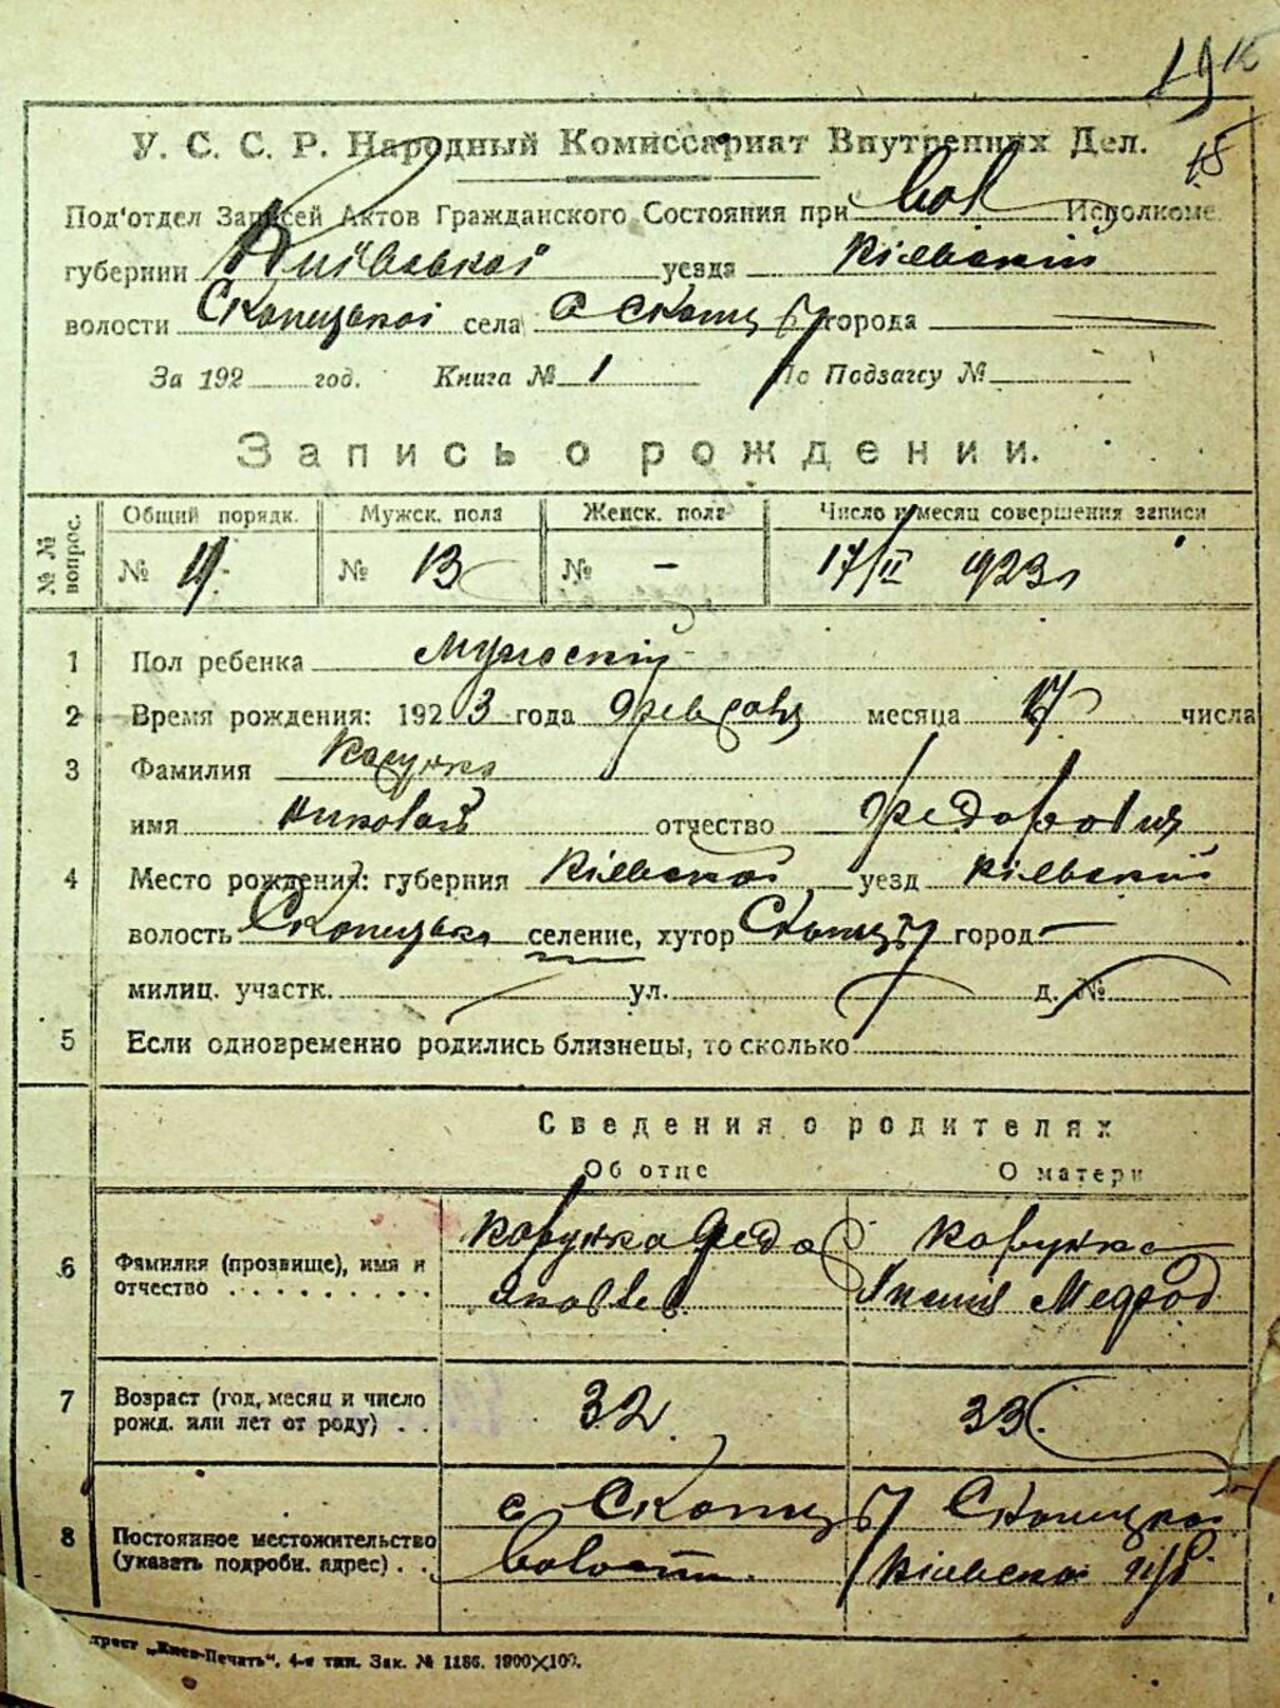 15
У. С. С. Р. Народный Комиссариат Внутренних Дел.
Под'отдел Записей Актов Гражданского Состояния при Вол Исполкоме
губернии Київської уезда Кіевскій
волости Скопицької села с Скопці города
За 192 год. Книга № 1 По Подзагсу №
Запись о рождении.
№ № вопрос. Общий порядк. Мужск. пола Женск. пола Число и месяц совершения записи
№ № 13 № - 17/II 923
1 Пол ребенка Мужескій
2 Время рождения: 1923 года Февраля месяца 17 числа
3 Фамилия Корунка
имя Николай отчество Федорович
4 Место рождения: губерния Кіевской уезд Кіевский
волость Скопицька селение, хутор Скопцы город -
милиц. участк. ул. д. №
5 Если одновременно родились близнецы, то сколько
Сведения о родителях
Об отце О матери
6 Фамилия (прозвище), имя и отчество Корунка Федор Яковлев Корунка
7 Возраст (год, месяц и число рожд. или лет от роду) 32 33
8 Постоянное местожительство (указать подробн. адрес) с Скопцы Скопицкой
волости Кіевской губ.
трест „Киев-Печать“. 4-я тип. Зак. № 1186. 1900×100.